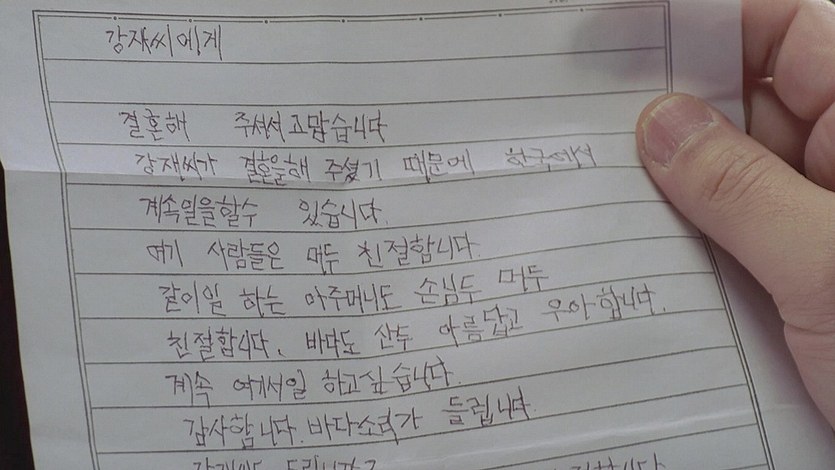 강재씨에게
결혼해 주셔서 고맙습니다
강재씨가 결혼을해 주셨기 때문에 한국에서
계속일을할수 있습니다.
여기 사람들은 머두 친절합니다.
같이일 하는 아주머니도 손님두 머두
친절합니다. 바다도 산두 아름답고 우아합니다.
계속 여기서일 하고싶습니다.
감사합니다. 바다소리가 들립니다